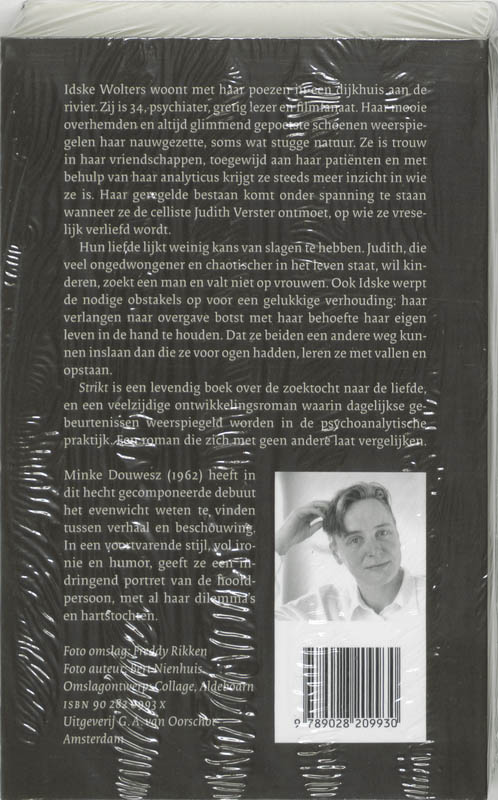 Idske Wolters woont met haar poezen in een dijkhuis aan de
rivier. Zij is 34, psychiater, gretig lezer en filmfanaat. Haar mooie
overhemden en altijd glimmend gepoetste schoenen weerspie-
gelen haar nauwgezette, soms wat stugge natuur. Ze is trouw
in haar vriendschappen, toegewijd aan haar patiënten en met
behulp van haar analyticus krijgt ze steeds meer inzicht in wie
ze is. Haar geregelde bestaan komt onder spanning te staan
wanneer ze de celliste Judith Verster ontmoet, op wie ze vrese-
lijk verliefd wordt.
Hun liefde lijkt weinig kans van slagen te hebben. Judith, die
veel ongedwongener en chaotischer in het leven staat, wil kin-
deren, zoekt een man en valt niet op vrouwen. Ook Idske werpt
de nodige obstakels op voor een gelukkige verhouding: haar
verlangen naar overgave botst met haar behoefte haar eigen
leven in de hand te houden. Dat ze beiden een andere weg kun-
nen inslaan dan die ze voor ogen hadden, leren ze met vallen en
opstaan.
Strikt is een levendig boek over de zoektocht naar de liefde,
en een veelzijdige ontwikkelingsroman waarin dagelijkse ge-
beurtenissen weerspiegeld worden in de psychoanalytische
praktijk. Een roman die zich met geen andere laat vergelijken.
Minke Douwesz (1962) heeft in
dit hecht gecomponeerde debuut
het evenwicht weten te vinden
tussen verhaal en beschouwing.
In een voortvarende stijl, vol iro-
nie en humor, geeft ze een in-
dringend portret van de hoofd-
persoon, met al haar dilemma's
en hartstochten.
Foto omslag: Freddy Rikken
Foto auteur: Bert Nienhuis
Omslagontwerp: Collage, Aldeboarn
ISBN 90 282 0993 X
Uitgeverij G.A. van Oorschot
Amsterdam
9 789028 209930